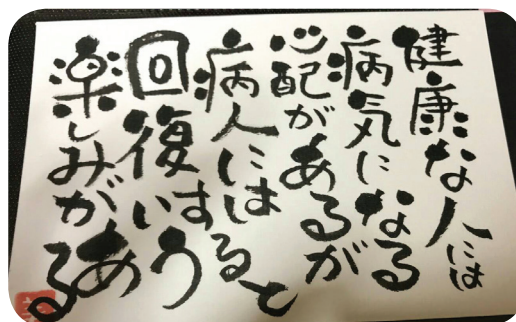 健康な人には
病気になる
心配があるが
病人には
回復すると
いう
楽しみがある